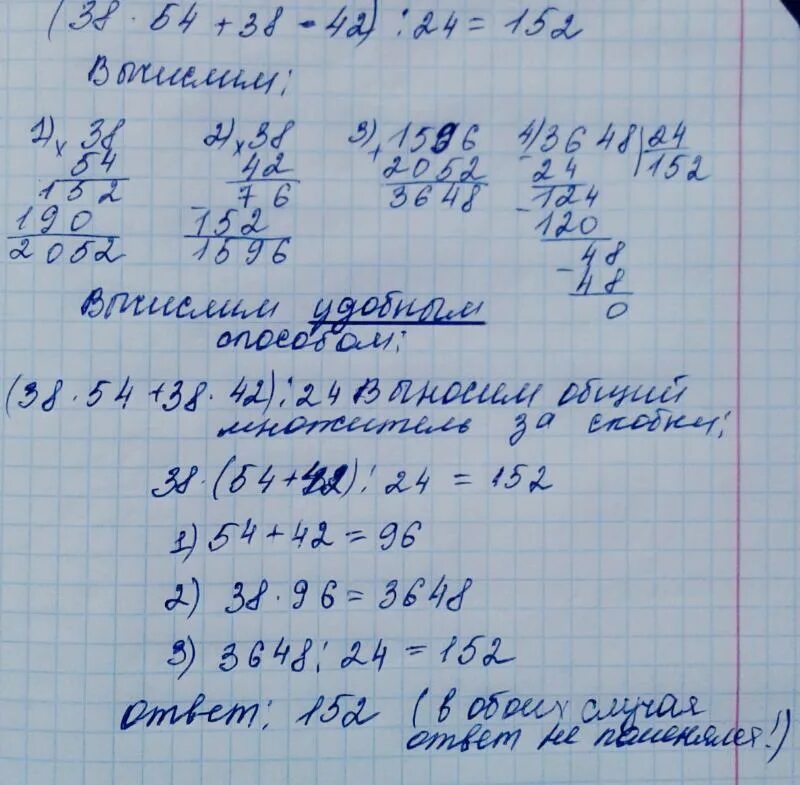 (38 · 54 + 38 · 42) : 24 = 152
Вычислим:
1) × 38
54
152
190
2052
2) × 38
42
76
152
1596
3) + 1596
2052
3648
4) 3648 | 24
24 | 152
124
120
48
48
0
Вычислим удобным
способом:
(38 · 54 + 38 · 42) : 24 Выносим общий
множитель за скобки:
38 · (54 + 42) : 24 = 152
1) 54 + 42 = 96
2) 38 · 96 = 3648
3) 3648 : 24 = 152
ответ: 152 (в обоих случая
ответ не поменялся!)